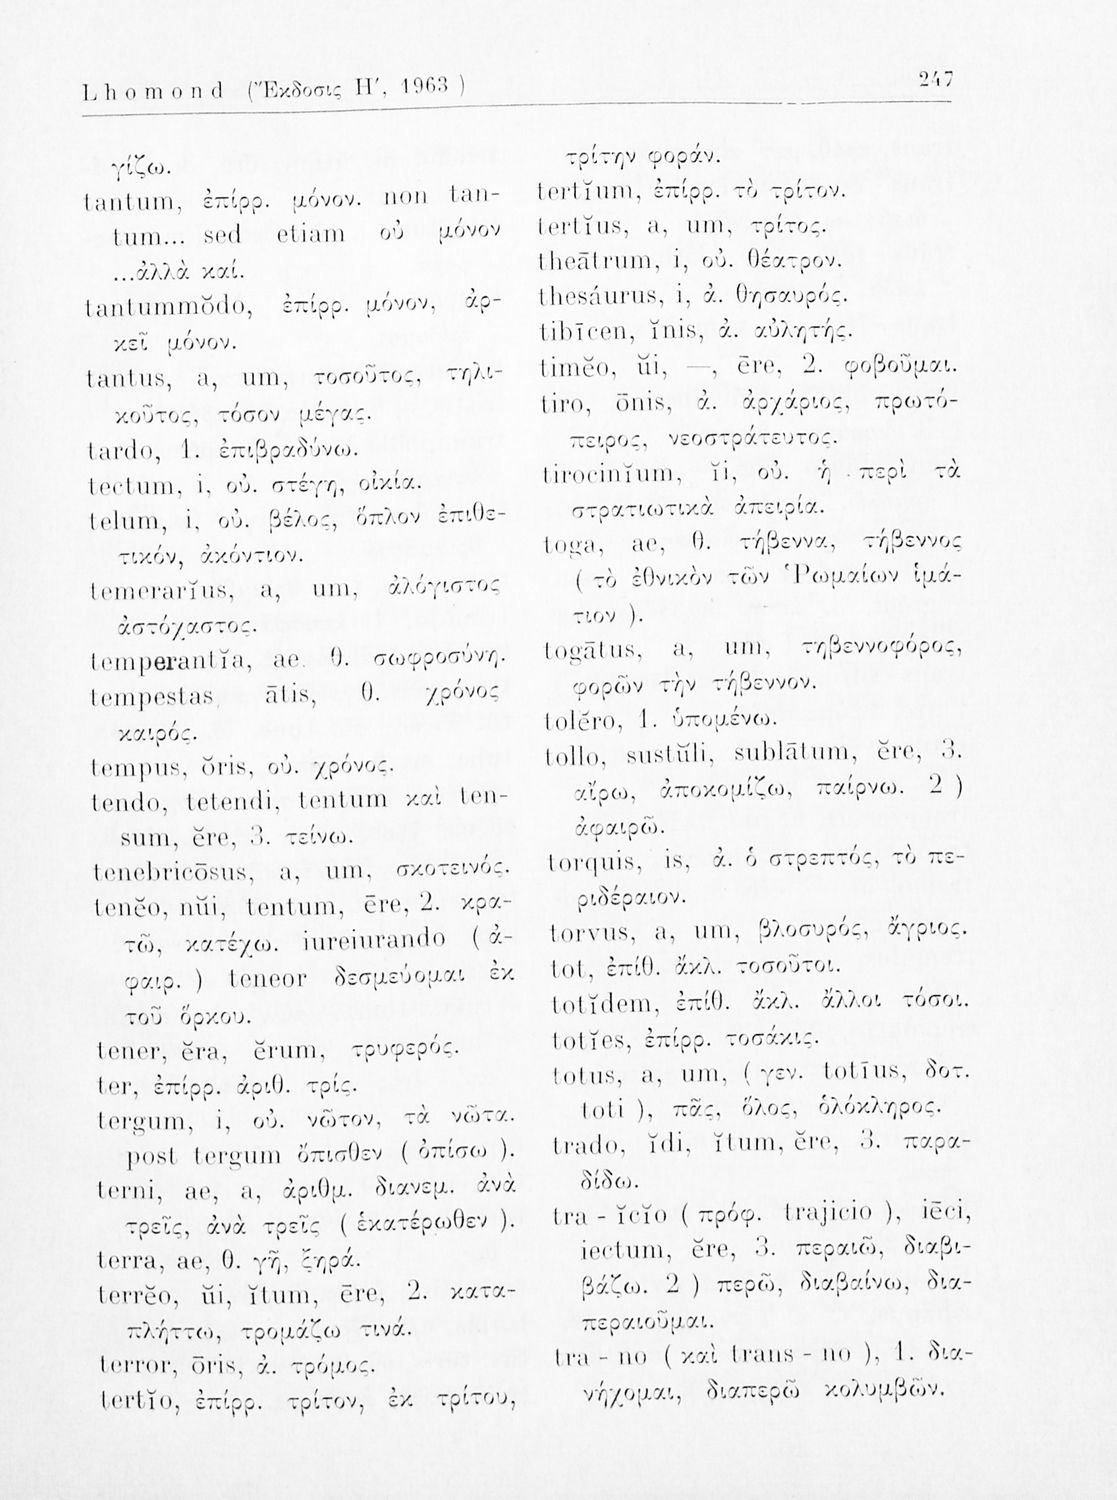 Lhomond (Ἔκδοσις Η', 1963 )
247
γίζω.
tantum, ἐπίρρ. μόνον. non tan-
tum... sed etiam οὐ μόνον
...ἀλλὰ καί.
tantummŏdo, ἐπίρρ. μόνον, ἀρ-
κεῖ μόνον.
tantus, a, um, τοσοῦτος, τηλι-
κοῦτος, τόσον μέγας.
tardo, 1. ἐπιβραδύνω.
tectum, i, οὐ. στέγη, οἰκία.
telum, i, οὐ. βέλος, ὅπλον ἐπιθε-
τικόν, ἀκόντιον.
temerarĭus, a, um, ἀλόγιστος
ἀστόχαστος.
temperantĭa, ae. θ. σωφροσύνη.
tempestas, ātis, θ. χρόνος
καιρός.
tempus, ŏris, οὐ. χρόνος.
tendo, tetendi, tentum καὶ ten-
sum, ĕre, 3. τείνω.
tenebricōsus, a, um, σκοτεινός.
tenĕo, nŭi, tentum, ēre, 2. κρα-
τῶ, κατέχω. iureiurando ( ἀ-
φαιρ. ) teneor δεσμεύομαι ἐκ
τοῦ ὅρκου.
tener, ĕra, ĕrum, τρυφερός.
ter, ἐπίρρ. ἀριθ. τρίς.
tergum, i, οὐ. νῶτον, τὰ νῶτα.
post tergum ὄπισθεν ( ὀπίσω ).
terni, ae, a, ἀριθμ. διανεμ. ἀνὰ
τρεῖς, ἀνὰ τρεῖς ( ἑκατέρωθεν ).
terra, ae, θ. γῆ, ξηρά.
terrĕo, ŭi, ĭtum, ēre, 2. κατα-
πλήττω, τρομάζω τινά.
terror, ōris, ἀ. τρόμος.
tertĭo, ἐπίρρ. τρίτον, ἐκ τρίτου,
τρίτην φοράν.
tertĭum, ἐπίρρ. τὸ τρίτον.
tertĭus, a, um, τρίτος.
theātrum, i, οὐ. θέατρον.
thesáurus, i, ἀ. θησαυρός.
tibīcen, ĭnis, ἀ. αὐλητής.
timĕo, ŭi, —, ēre, 2. φοβοῦμαι.
tiro, ōnis, ἀ. ἀρχάριος, πρωτό-
πειρος, νεοστράτευτος.
tirocinĭum, ĭi, οὐ. ἡ περὶ τὰ
στρατιωτικὰ ἀπειρία.
toga, ae, θ. τήβεννα, τήβεννος
( τὸ ἐθνικὸν τῶν Ῥωμαίων ἱμά-
τιον ).
togātus, a, um, τηβεννοφόρος,
φορῶν τὴν τήβεννον.
tolĕro, 1. ὑπομένω.
tollo, sustŭli, sublātum, ĕre, 3.
αἴρω, ἀποκομίζω, παίρνω. 2 )
ἀφαιρῶ.
torquis, is, ἀ. ὁ στρεπτός, τὸ πε-
ριδέραιον.
torvus, a, um, βλοσυρός, ἄγριος.
tot, ἐπίθ. ἄκλ. τοσοῦτοι.
totĭdem, ἐπίθ. ἄκλ. ἄλλοι τόσοι.
totĭes, ἐπίρρ. τοσάκις.
totus, a, um, ( γεν. totīus, δοτ.
toti ), πᾶς, ὅλος, ὁλόκληρος.
trado, ĭdi, ĭtum, ĕre, 3. παρα-
δίδω.
tra - ĭcĭo ( πρόφ. trajicio ), iēci,
iectum, ĕre, 3. περαιῶ, διαβι-
βάζω. 2 ) περῶ, διαβαίνω, δια-
περαιοῦμαι.
tra - no ( καὶ trans - no ), 1. δια-
νήχομαι, διαπερῶ κολυμβῶν.